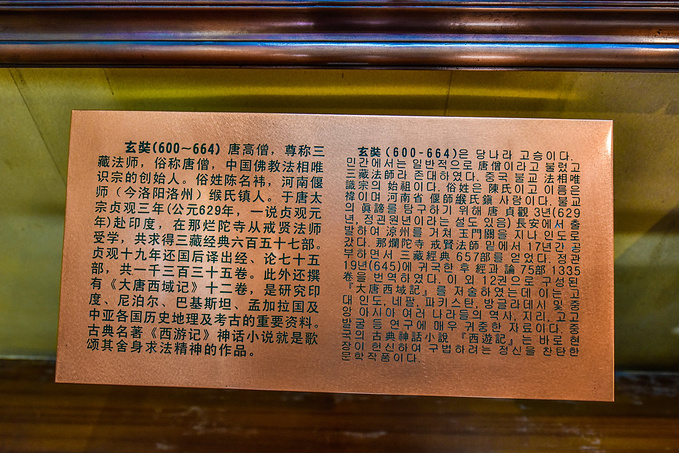 玄奘(600～664)唐高僧，尊称三
藏法师，俗称唐僧，中国佛教法相唯
识宗的创始人。俗姓陈名祎，河南偃
师（今洛阳洛州）缑氏镇人。于唐太
宗贞观三年(公元629年，一说贞观元
年)赴印度，在那烂陀寺从戒贤法师
受学，共求得三藏经典六百五十七部。
贞观十九年还国后译出经、论七十五
部，共一千三百三十五卷。此外还撰
有《大唐西域记》十二卷，是研究印
度、尼泊尔、巴基斯坦、孟加拉国及
中亚各国历史地理及考古的重要资料。
古典名著《西游记》神话小说就是歌
颂其舍身求法精神的作品。
玄奘(600-664)은 당나라 고승이다.
민간에서는 일반적으로 唐僧이라고 불렀고
三藏法師라 존대하였다. 중국 불교 法相唯
識宗의 始祖이다. 俗姓은 陳氏이고 이름은
褘이며 河南省 偃師緱氏鎭 사람이다. 불교
의 眞諦를 탐구하기 위해 唐 貞觀 3년(629
년, 정관원년이라는 설도 있음) 長安에서 출
발하여 凉州를 거쳐 玉門關을 지나 인도로
갔다. 那爛陀寺 戒賢法師 밑에서 17년간 공
부하면서 三藏經典 657部를 얻었다. 정관
19년(645)에 귀국한 후 經과 論 75部 1335
卷을 번역하였다. 이 외 12권으로 구성된
『大唐西域記』를 저술하였는데 이는 고
대 인도, 네팔, 파키스탄, 방글라데시 및 중
앙 아시아 여러 나라들의 역사, 지리, 고고
발굴 등 연구에 매우 귀중한 자료이다. 중
국의 古典神話小說 『西遊記』는 바로 현
장이 헌신하여 구법하려는 정신을 찬탄한
문학작품이다.